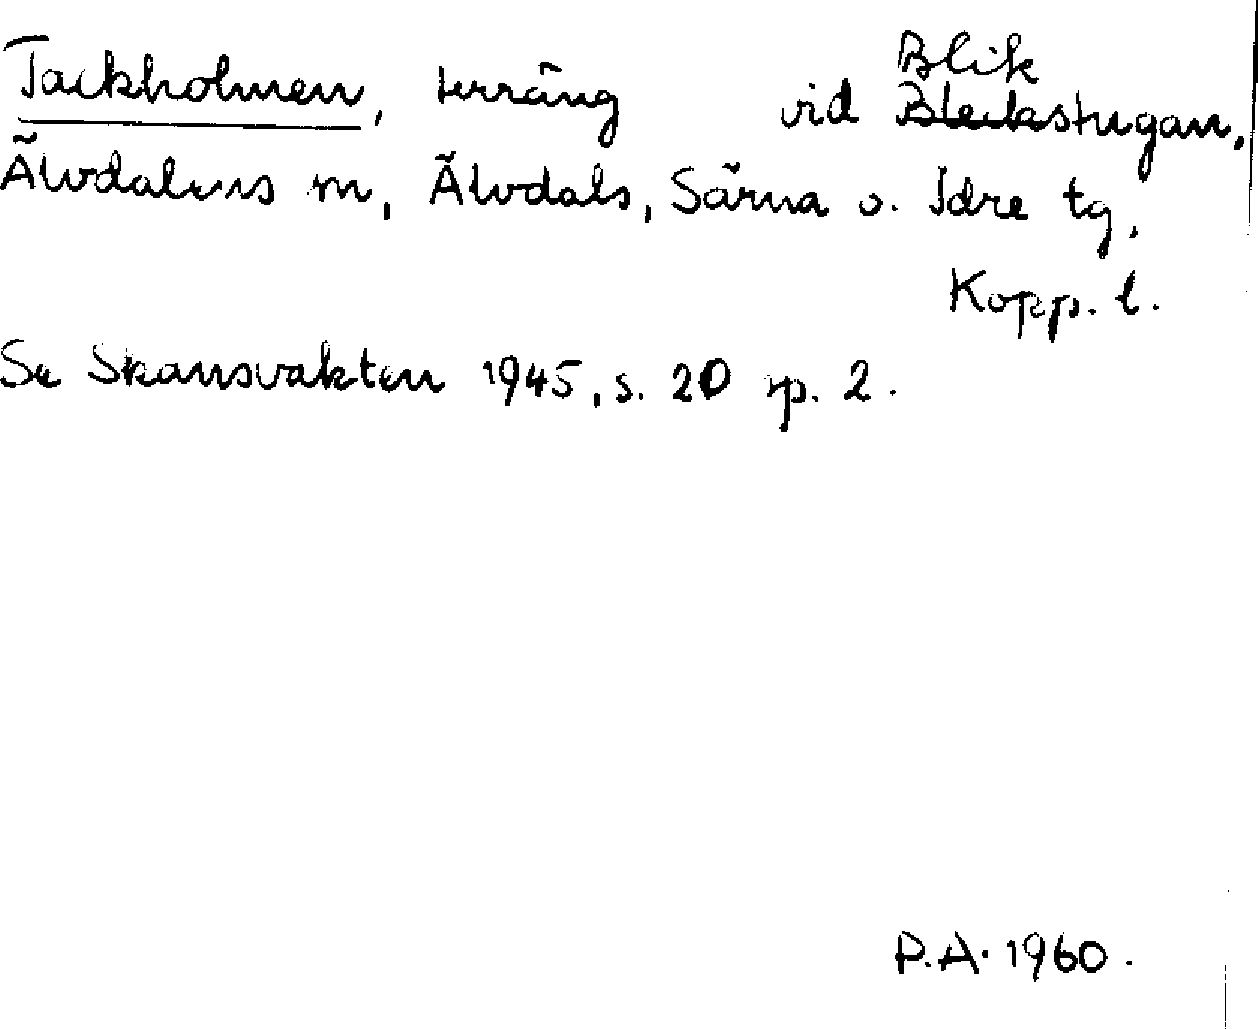 Blik
Tackholmen, terräng vid Bleckastugan,
Älvdalens m, Älvdals, Särna o. Idre tg.
Kopp. l.
Se Skansvakten 1945, s. 20 sp. 2.
P.A. 1960.